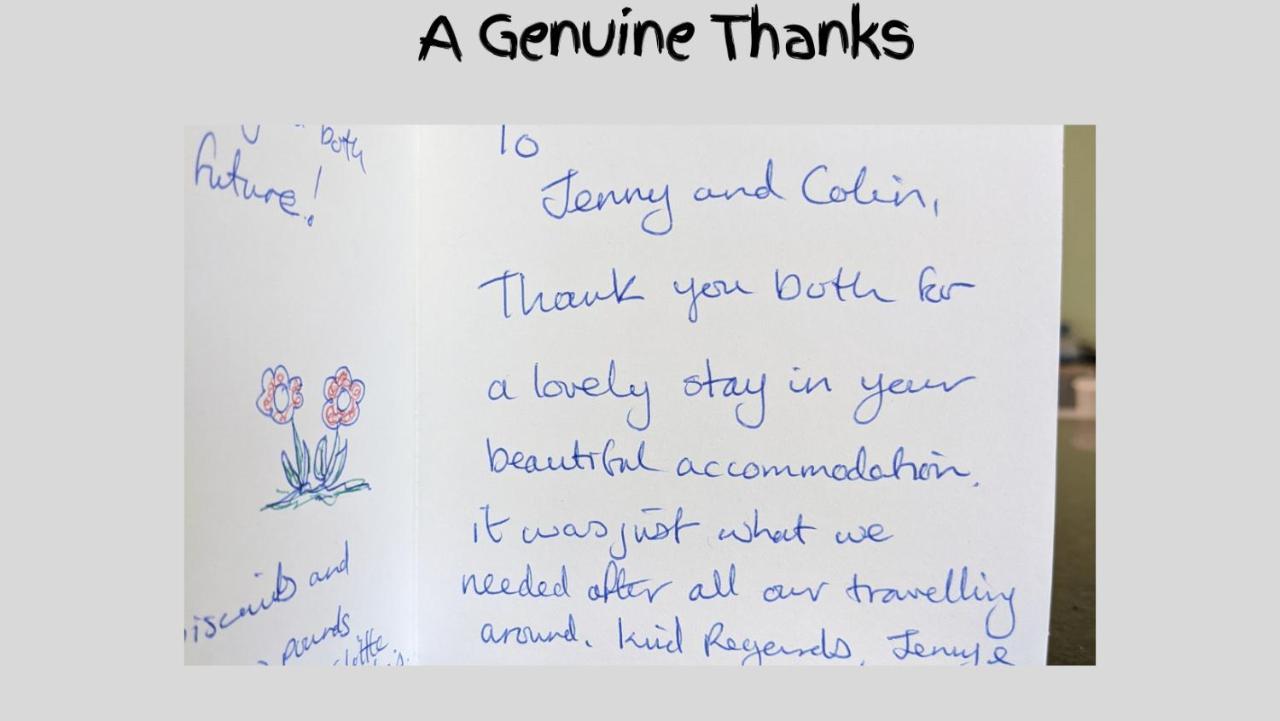 A Genuine Thanks
both
future!
and
pounds
To
Jenny and Colin,
Thank you both for
a lovely stay in your
beautiful accommodation.
it was just what we
needed after all our travelling
around. Kind Regards,